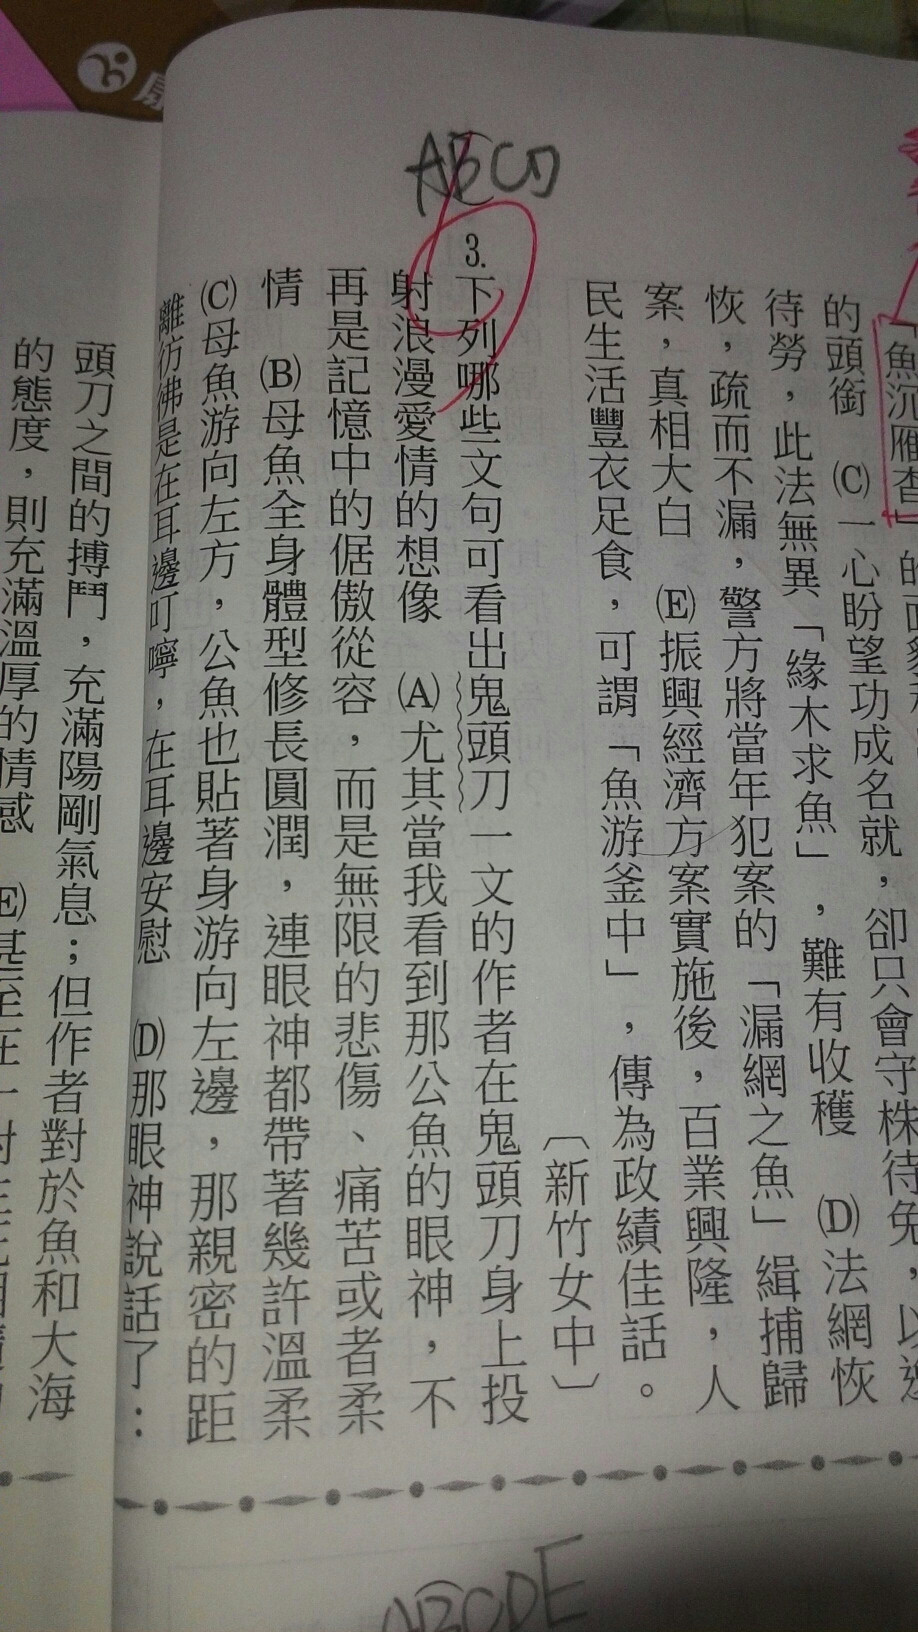 ABCD
「魚沉雁杳」
的頭銜　(C)一心盼望功成名就，卻只會守株待兔，以逸
待勞，此法無異「緣木求魚」，難有收穫　(D)法網恢
恢，疏而不漏，警方將當年犯案的「漏網之魚」緝捕歸
案，真相大白　(E)振興經濟方案實施後，百業興隆，人
民生活豐衣足食，可謂「魚游釜中」，傳為政績佳話。
〔新竹女中〕
3.下列哪些文句可看出鬼頭刀一文的作者在鬼頭刀身上投
射浪漫愛情的想像　(A)尤其當我看到那公魚的眼神，不
再是記憶中的倨傲從容，而是無限的悲傷、痛苦或者柔
情　(B)母魚全身體型修長圓潤，連眼神都帶著幾許溫柔
(C)母魚游向左方，公魚也貼著身游向左邊，那親密的距
離彷彿是在耳邊叮嚀，在耳邊安慰　(D)那眼神說話了：
頭刀之間的搏鬥，充滿陽剛氣息；但作者對於魚和大海
的態度，則充滿溫厚的情感　(E)甚至在一
ABCDE